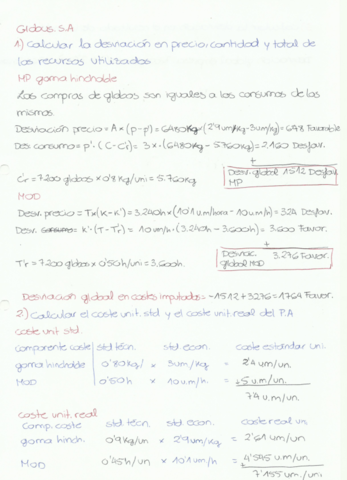 Globus, S.A
1) Calcular la desviación en precio, cantidad y total de
los recursos utilizados
MP goma hinchable
Las compras de globos son iguales a los consumos de los
mismos.
Desviación precio = A × (p - p') = 6480kg × (2'9 um/kg - 3um/kg) = 648 Favorable
Des consumo = p' · (C - Cr) = 3 × (6480kg - 5.760kg) = 2.160 Desfav.
+
Cr = 7200 globos × 0'8 kg/uni = 5.760kg
Desv. global 1512 Desfav
MP
MOD
Desv. precio = T × (k - k') = 3.240h × (10'1 um/hora - 10 um/h) = 324 Desfav.
Desv. k' · (T - Tr) = 10 um/h · (3.240h - 3.600h) = 3.600 Favor.
+
Tr = 7.200 globos × 0'50h/uni = 3.600h.
Desviac. 3.276 Favor.
global MOD
Desviación global en costes imputados = -1512 + 3276 = 1764 Favor.
2) Calcular el coste unit. std y el coste unit. real del P.A
coste unit std.
componente coste std técn. std. econ. coste estandar uni.
goma hinchable 0'80kg/ × 3um/kg = 2'4 um/un.
MOD 0'50h × 10 u.m/h. = +5 u.m/un.
7'4 u.m/un.
coste unit. real
Comp. coste std técn. std. econ. coste real un.
goma hinch. 0'9kg/un × 2'9 um/kg = 2'61 um/un
MOD 0'45h/un × 10'1 um/h = 4'545 um/un.
7'155 um./uni